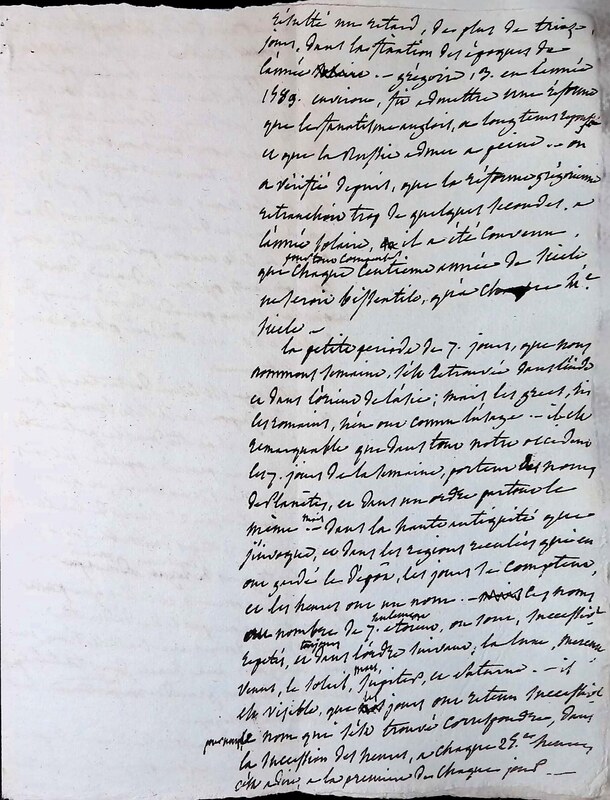 résulté un retard, de plus de treize
jours, dans la fixation des époques de
l'année – grégoire, 13. en l'année
1583. environ, fit admettre une réforme
que le fanatisme anglois, a longtems repoussé
et que la Russie admet a peine – on
a vérifié depuis, que la réforme grégorienne
retranchoit trop de quelques secondes, a
l'année solaire, il a été convenu,
pour tout compenser
que chaque centieme année de siecle
ne seroit bissextile, qu'a chaque 4.e
siecle –
la petite periode de 7. jours, que nous
nommons semaine, s'est retrouvée dans l'inde
et dans l'orient de l'asie; mais les grecs, ni
les romains, n'en ont connu l'usage – il est
remarquable que dans tout notre occident
les 7. jours de la semaine, portent des noms
de Planètes, et dans un ordre partout le
même – mais dans la haute antiquité que
j'invoque, et dans les régions reculées qui en
ont gardé le dépôt, les jours se comptent,
et les heures ont un nom – ces noms
au nombre de 7. seulement, sont, successivt
repetés, toujours dans l'ordre suivant; la lune, mercure
venus, le soleil, mars, jupiter, et saturne – il
est visible que les jours ont retenu successivt
pour nom le nom qui s'est trouvé correspondre, dans
la succession des heures, a chaque 25.eme heure,
c'est a dire, a la premiere de chaque jour –